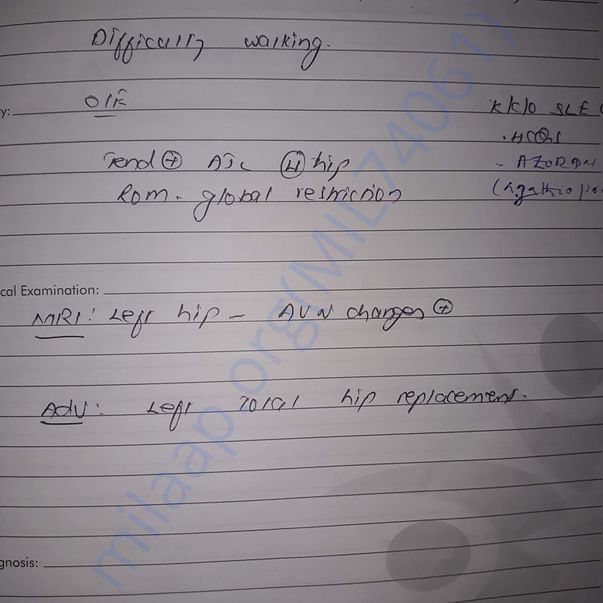 Difficulty walking.
y: O/E
K/C/O SLE
. HCQs
Tend ⊕ AJL (H) hip
ROM - global restriction
cal Examination:
MRI: Left hip - AVN changes ⊕
ADV: Left total hip replacement.
gnosis:
milaap.org(MIL740061)